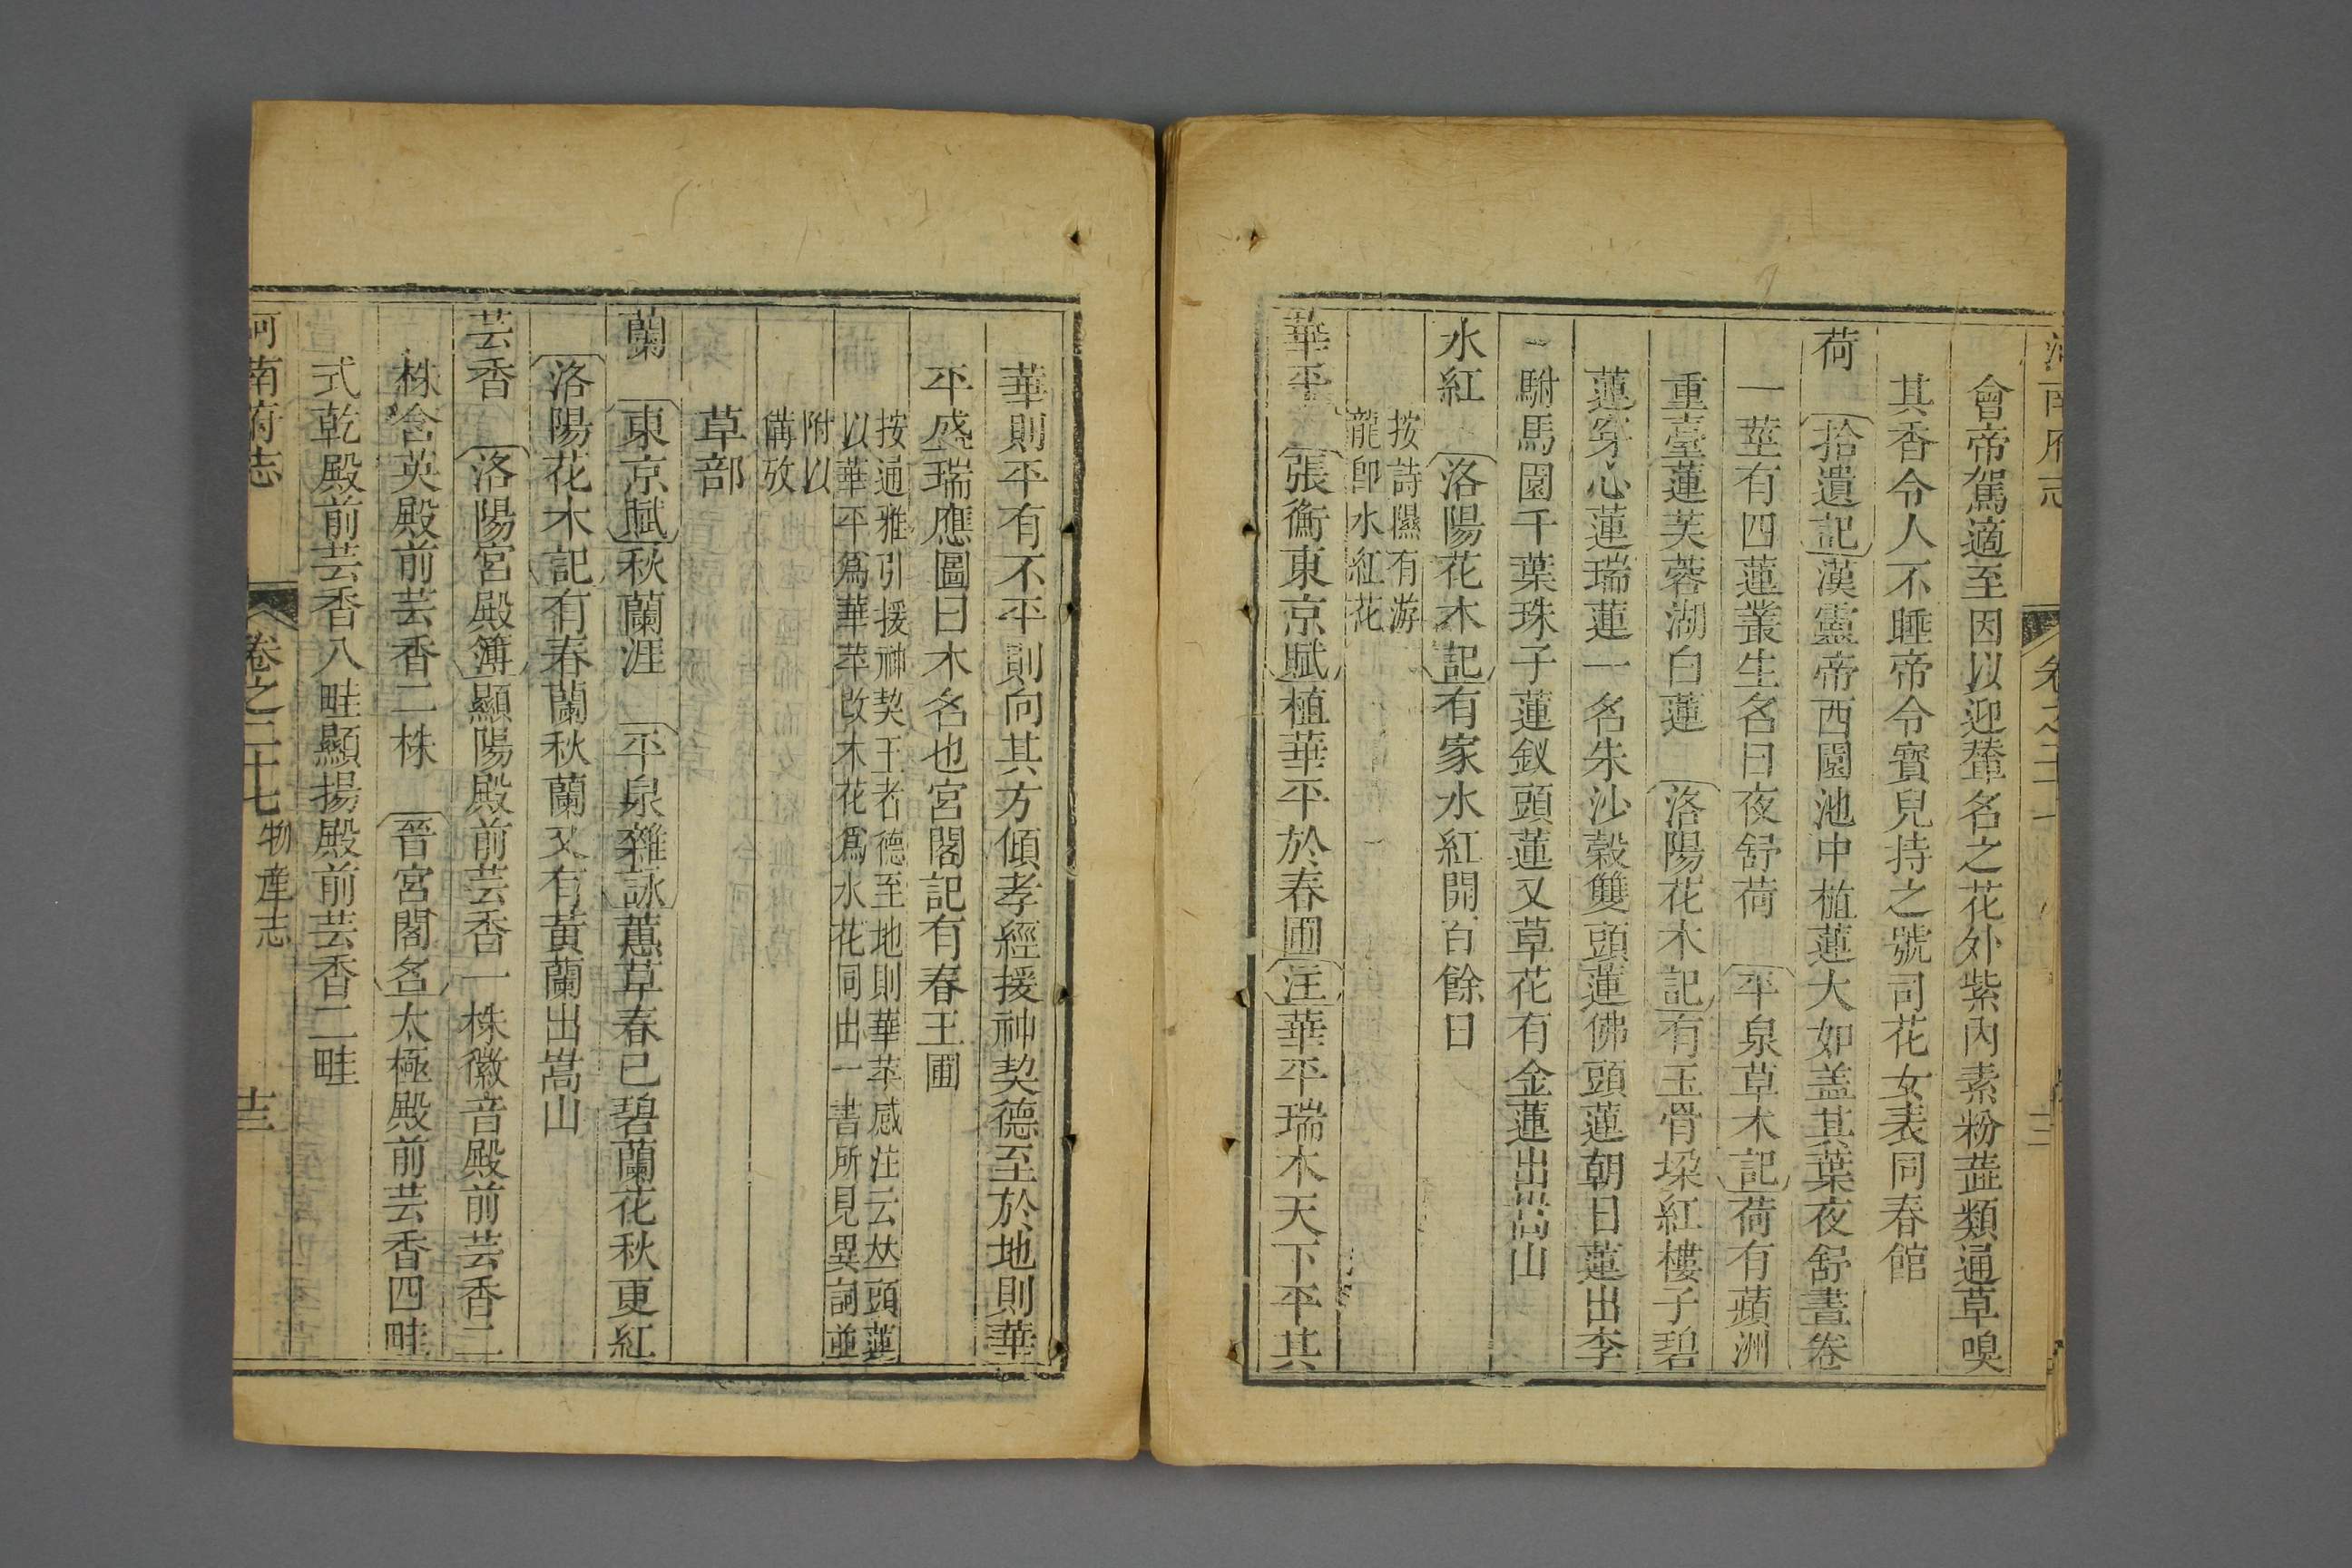 會帝駕適至因以迎輦名之花外紫內素粉蕋類通草嗅
其香令人不睡帝令寶兒持之號司花女表同春館
荷 拾遺記漢靈帝西園池中植蓮大如盖其葉夜舒晝卷
一莖有四蓮叢生名曰夜舒荷 平泉草木記荷有蘋洲
重臺蓮芙蓉湖白蓮 洛陽花木記有玉骨垜紅樓子碧
蓮穿心蓮瑞蓮一名朱沙穀雙頭蓮佛頭蓮朝日蓮出李
駙馬園千葉珠子蓮釵頭蓮又草花有金蓮出嵩山
水紅 洛陽花木記有家水紅開百餘日
按詩隰有游
龍卽水紅花
華平 張衡東京賦植華平於春圃注華平瑞木天下平其
華則平有不平則向其方傾孝經援神契德至於地則華
平盛瑞應圖曰木名也宮閣記有春王圃
按通雅引援神契王者德至地則華苹感注云丛頭蓮
以華平爲華苹改木花爲水花同出一書所見異詞並
附以
備攷
草部
蘭 東京賦秋蘭涯 平泉雜詠蕙草春已碧蘭花秋更紅
洛陽花木記有春蘭秋蘭又有黃蘭出嵩山
芸香 洛陽宮殿簿顯陽殿前芸香一株徽音殿前芸香二
株含英殿前芸香二株 晉宮閣名太極殿前芸香四畦
式乾殿前芸香八畦顯揚殿前芸香二畦
河南府志 卷之二十七 物產志